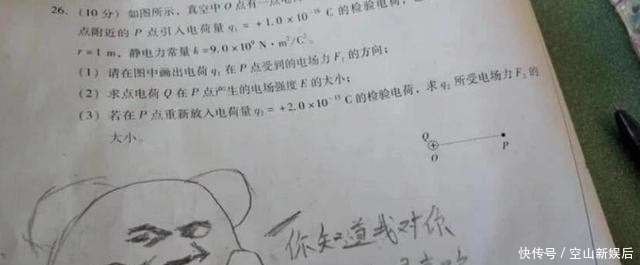 26. (10分) 如图所示，真空中O点有一点电
点附近的 P 点引入电荷量 q₁ = +1.0×10 C 的检验电荷，
r = 1 m，静电力常量 k = 9.0×10⁹ N·m²/C²。
(1) 请在图中画出电荷 q₁ 在 P 点受到的电场力 F₁ 的方向；
(2) 求点电荷 Q 在 P 点产生的电场强度 E 的大小；
(3) 若在 P 点重新放入电荷量 q₂ = +2.0×10⁻¹⁵ C 的检验电荷，求 q₂ 所受电场力 F₂ 的
大小。
Q
O
P
你知道我对你
快传号 / 空山新娱后